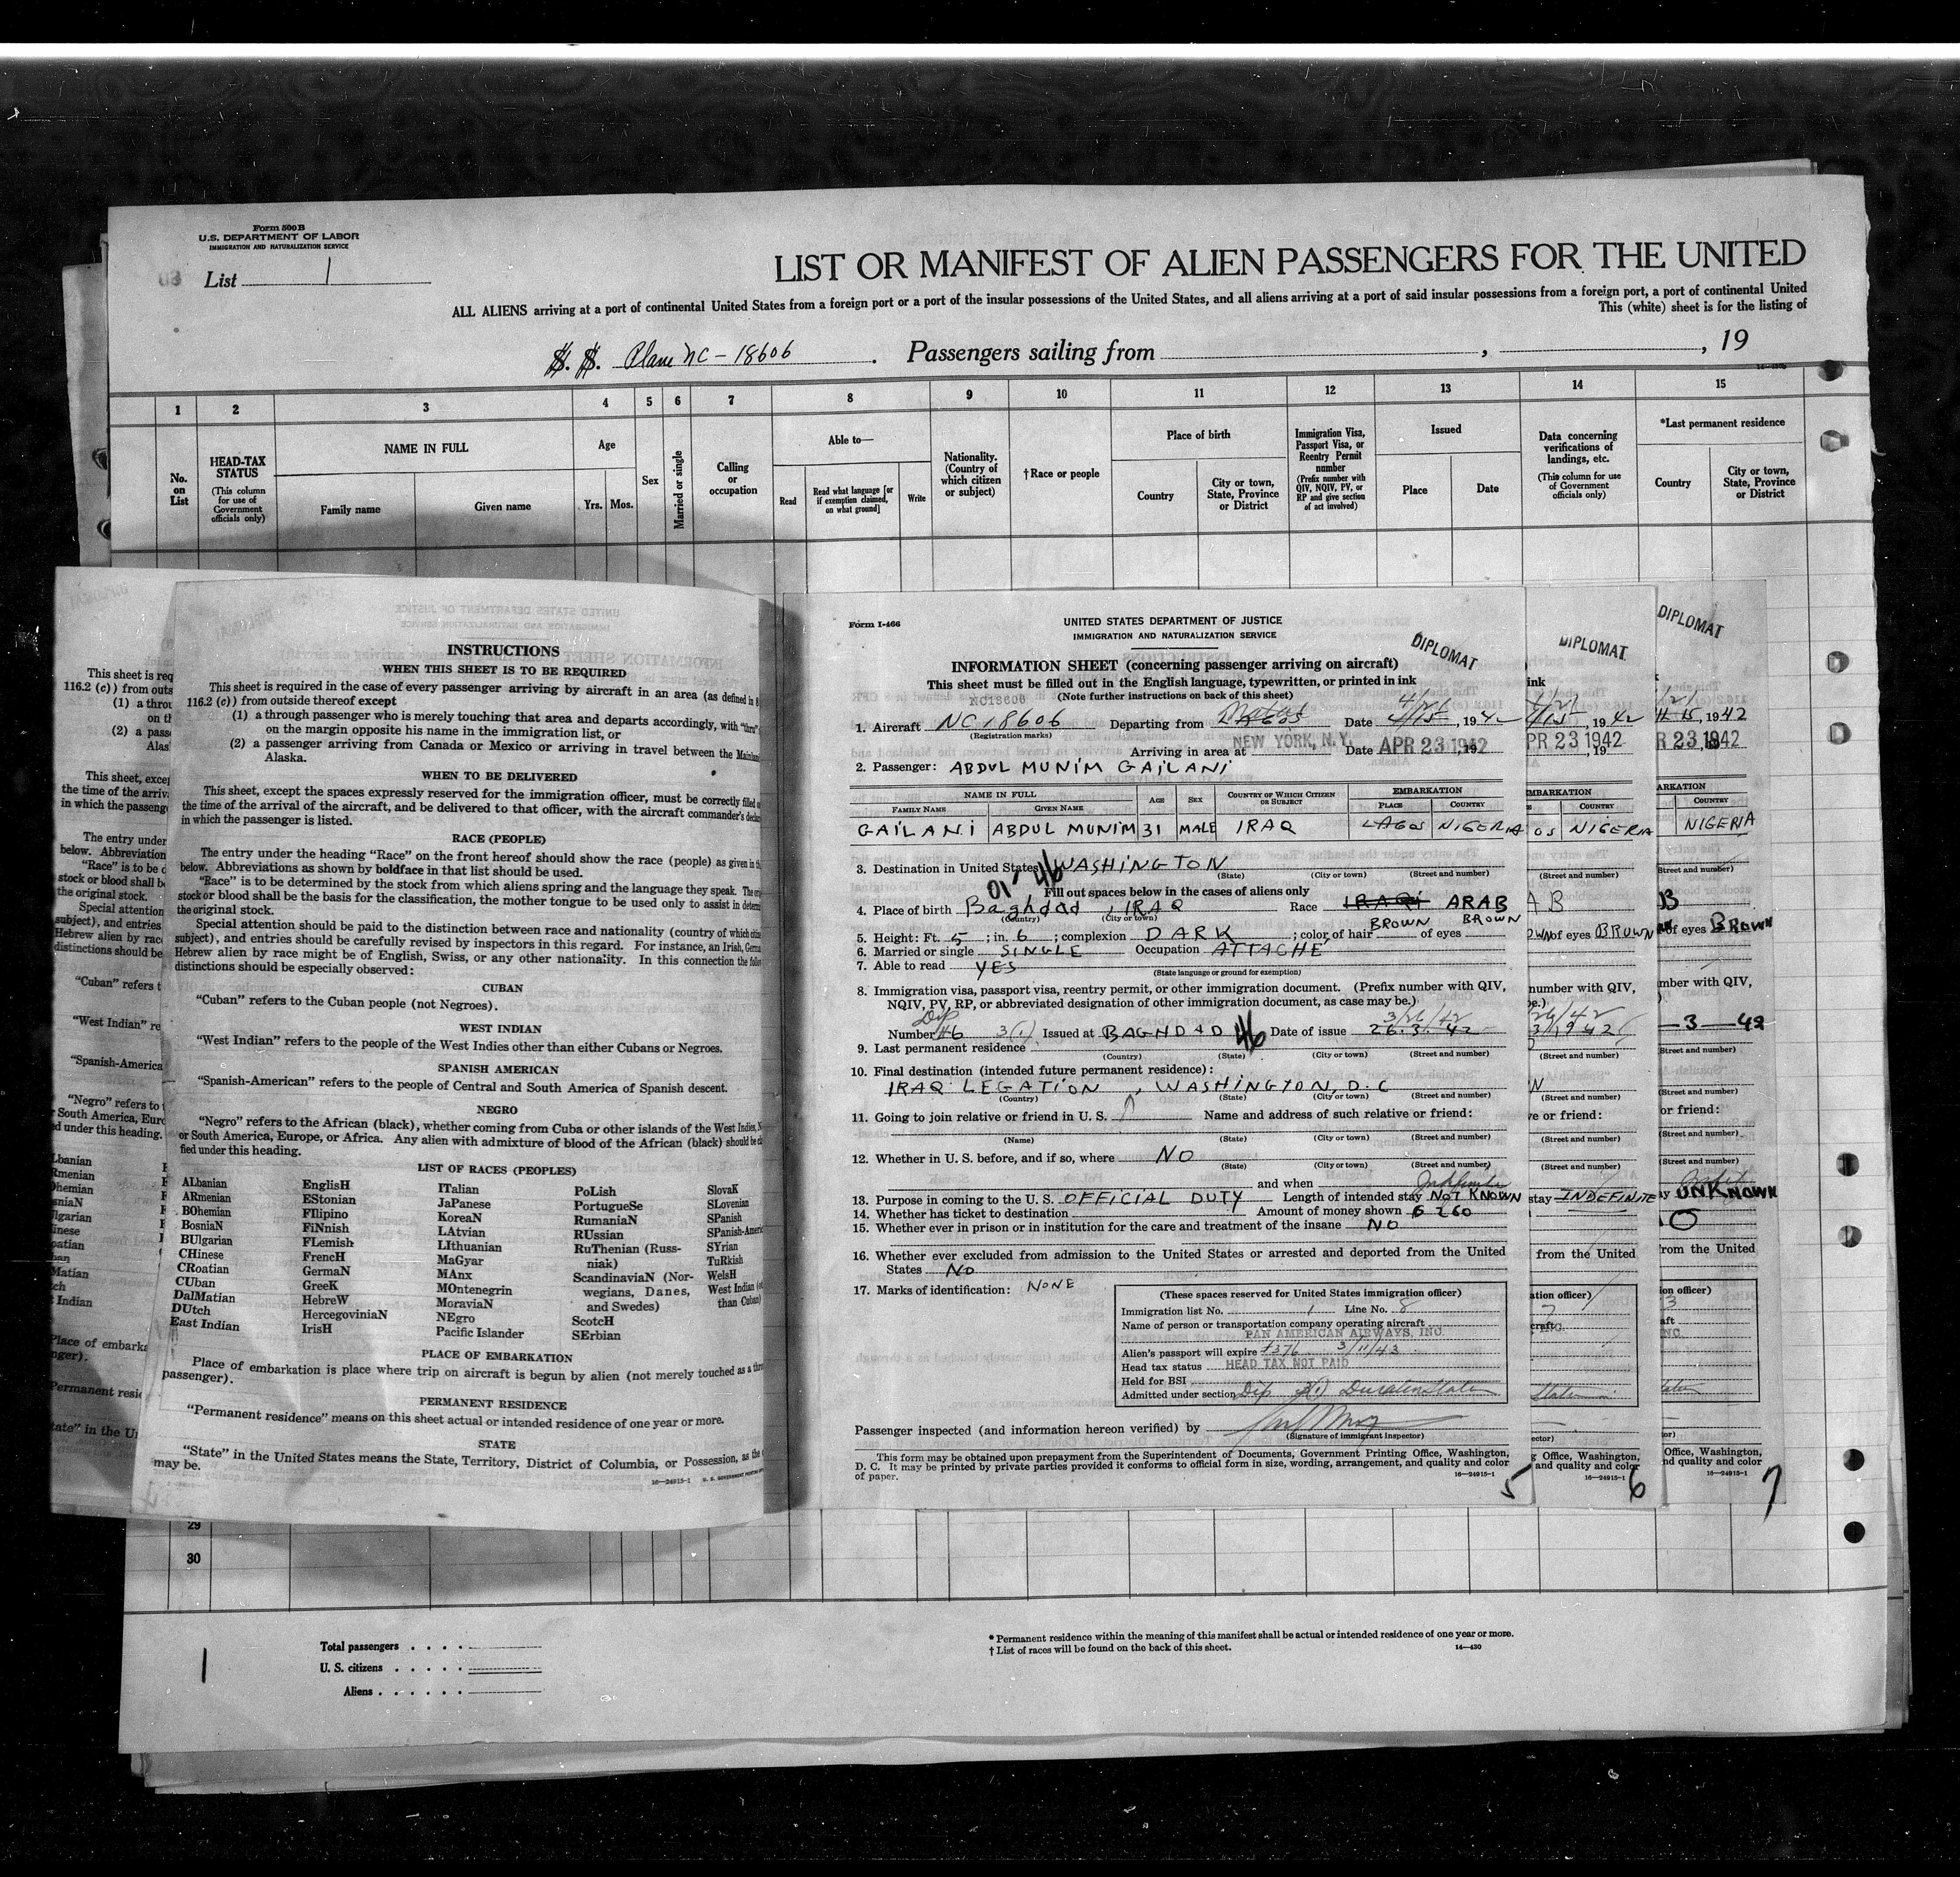 Form 500B
U.S. DEPARTMENT OF LABOR
IMMIGRATION AND NATURALIZATION SERVICE
List 1
LIST OR MANIFEST OF ALIEN PASSENGERS FOR THE UNITED
ALL ALIENS arriving at a port of continental United States from a foreign port or a port of the insular possessions of the United States, and all aliens arriving at a port of said insular possessions from a foreign port, a port of continental United
This (white) sheet is for the listing of
S. S. Plane NC-18606. Passengers sailing from , , 19
1 2 3 4 5 6 7 8 9 10 11 12 13 14 15
No. on List
HEAD-TAX STATUS
(This column for use of Government officials only)
NAME IN FULL
Family name Given name
Age
Yrs. Mos.
Sex
Married or single
Calling or occupation
Able to—
Read
Read what language [or if exemption claimed, on what ground]
Write
Nationality. (Country of which citizen or subject)
†Race or people
Place of birth
Country
City or town, State, Province or District
Immigration Visa, Passport Visa, or Reentry Permit number
(Prefix number with QIV, NQIV, PV, or RP and give section of act involved)
Issued
Place Date
Data concerning verifications of landings, etc.
(This column for use of Government officials only)
*Last permanent residence
Country
City or town, State, Province or District
INSTRUCTIONS
WHEN THIS SHEET IS TO BE REQUIRED
This sheet is required in the case of every passenger arriving by aircraft in an area (as defined in 8
116.2 (c)) from outside thereof except
(1) a through passenger who is merely touching that area and departs accordingly, with "thru"
on the margin opposite his name in the immigration list, or
(2) a passenger arriving from Canada or Mexico or arriving in travel between the Mainland
Alaska.
WHEN TO BE DELIVERED
This sheet, except the spaces expressly reserved for the immigration officer, must be correctly filled
the time of the arrival of the aircraft, and be delivered to that officer, with the aircraft commander's
in which the passenger is listed.
RACE (PEOPLE)
The entry under the heading "Race" on the front hereof should show the race (people) as given in
below. Abbreviations as shown by boldface in that list should be used.
"Race" is to be determined by the stock from which aliens spring and the language they speak. The
stock or blood shall be the basis for the classification, the mother tongue to be used only to assist in
the original stock.
Special attention should be paid to the distinction between race and nationality (country of which
subject), and entries should be carefully revised by inspectors in this regard. For instance, an Irish,
Hebrew alien by race might be of English, Swiss, or any other nationality. In this connection the
distinctions should be especially observed:
CUBAN
"Cuban" refers to the Cuban people (not Negroes).
WEST INDIAN
"West Indian" refers to the people of the West Indies other than either Cubans or Negroes.
SPANISH AMERICAN
"Spanish-American" refers to the people of Central and South America of Spanish descent.
NEGRO
"Negro" refers to the African (black), whether coming from Cuba or other islands of the West Indies,
or South America, Europe, or Africa. Any alien with admixture of blood of the African (black) should be
fied under this heading.
LIST OF RACES (PEOPLES)
ALbanian EnglisH ITalian PoLish SlovaK
ARmenian EStonian JaPanese PortugueSe SLovenian
BOhemian FIlipino KoreaN RumaniaN SPanish
BosniaN FiNnish LAtvian RUssian SPanish-Ameri
BUlgarian FLemish LIthuanian RuThenian (Russniak) SYrian
CHinese FrencH MaGyar TuRkish
CRoatian GermaN MAnx ScandinaviaN (Norwegians, Danes, and Swedes) WelsH
CUban GreeK MOntenegrin West Indian
DalMatian HebreW MoraviaN than Cuban)
DUtch HercegoviniaN NEgro ScotcH
East Indian IrisH Pacific Islander SErbian
PLACE OF EMBARKATION
Place of embarkation is place where trip on aircraft is begun by alien (not merely touched as a
passenger).
PERMANENT RESIDENCE
"Permanent residence" means on this sheet actual or intended residence of one year or more.
STATE
"State" in the United States means the State, Territory, District of Columbia, or Possession, as the
may be.
16—24915-1
Form I-466
UNITED STATES DEPARTMENT OF JUSTICE
IMMIGRATION AND NATURALIZATION SERVICE
DIPLOMAT
INFORMATION SHEET (concerning passenger arriving on aircraft)
This sheet must be filled out in the English language, typewritten, or printed in ink
(Note further instructions on back of this sheet)
NC18606
1. Aircraft NC18606 Departing from Date 4/15, 1942
4/21
(Registration marks)
Arriving in area at NEW YORK, N.Y. Date APR 23 1942, 19
2. Passenger: ABDUL MUNIM GAILANI
NAME IN FULL AGE SEX COUNTRY OF WHICH CITIZEN OR SUBJECT EMBARKATION
FAMILY NAME GIVEN NAME PLACE COUNTRY
GAILANI ABDUL MUNIM 31 MALE IRAQ LAGOS NIGERIA
3. Destination in United States WASHINGTON
(State) (City or town) (Street and number)
01' 46
Fill out spaces below in the cases of aliens only
4. Place of birth Baghdad, IRAQ Race IRAQI ARAB
(Country) (City or town)
5. Height: Ft. 5; in. 6; complexion DARK; color of hair BROWN of eyes BROWN
6. Married or single SINGLE Occupation ATTACHE
7. Able to read YES
(State language or ground for exemption)
8. Immigration visa, passport visa, reentry permit, or other immigration document. (Prefix number with QIV,
NQIV, PV, RP, or abbreviated designation of other immigration document, as case may be.)
Dip 3/26/42
Number 46 3(1) Issued at BAGHDAD 46 Date of issue 26.3.42
9. Last permanent residence
(Country) (State) (City or town) (Street and number)
10. Final destination (intended future permanent residence):
IRAQ LEGATION, WASHINGTON, D.C
(Country) (State) (City or town) (Street and number)
11. Going to join relative or friend in U. S. Name and address of such relative or friend:
(Name) (State) (City or town) (Street and number)
12. Whether in U. S. before, and if so, where NO
(State) (City or town) (Street and number)
and when
Indefinite
13. Purpose in coming to the U. S. OFFICIAL DUTY Length of intended stay NOT KNOWN
14. Whether has ticket to destination Amount of money shown $ 260
15. Whether ever in prison or in institution for the care and treatment of the insane NO
16. Whether ever excluded from admission to the United States or arrested and deported from the United
States No
17. Marks of identification: NONE
(These spaces reserved for United States immigration officer)
Immigration list No. 1 Line No. 8
Name of person or transportation company operating aircraft
PAN AMERICAN AIRWAYS, INC.
Alien's passport will expire 3/11/43
Head tax status HEAD TAX NOT PAID
Held for BSI
Admitted under section Dip 3(1) Duration Status
Passenger inspected (and information hereon verified) by
(Signature of immigrant inspector)
This form may be obtained upon prepayment from the Superintendent of Documents, Government Printing Office, Washington,
D. C. It may be printed by private parties provided it conforms to official form in size, wording, arrangement, and quality and color
of paper.
16—24915-1
5
DIPLOMAT
PR 23 1942
NIGERIA
of eyes BROWN
stay INDEFINITE
6
DIPLOMAT
R 23 1942
NIGERIA
of eyes BROWN
—3—42
UNKNOWN
7
29
30
1
Total passengers
U. S. citizens
Aliens
* Permanent residence within the meaning of this manifest shall be actual or intended residence of one year or more.
† List of races will be found on the back of this sheet.
14—430